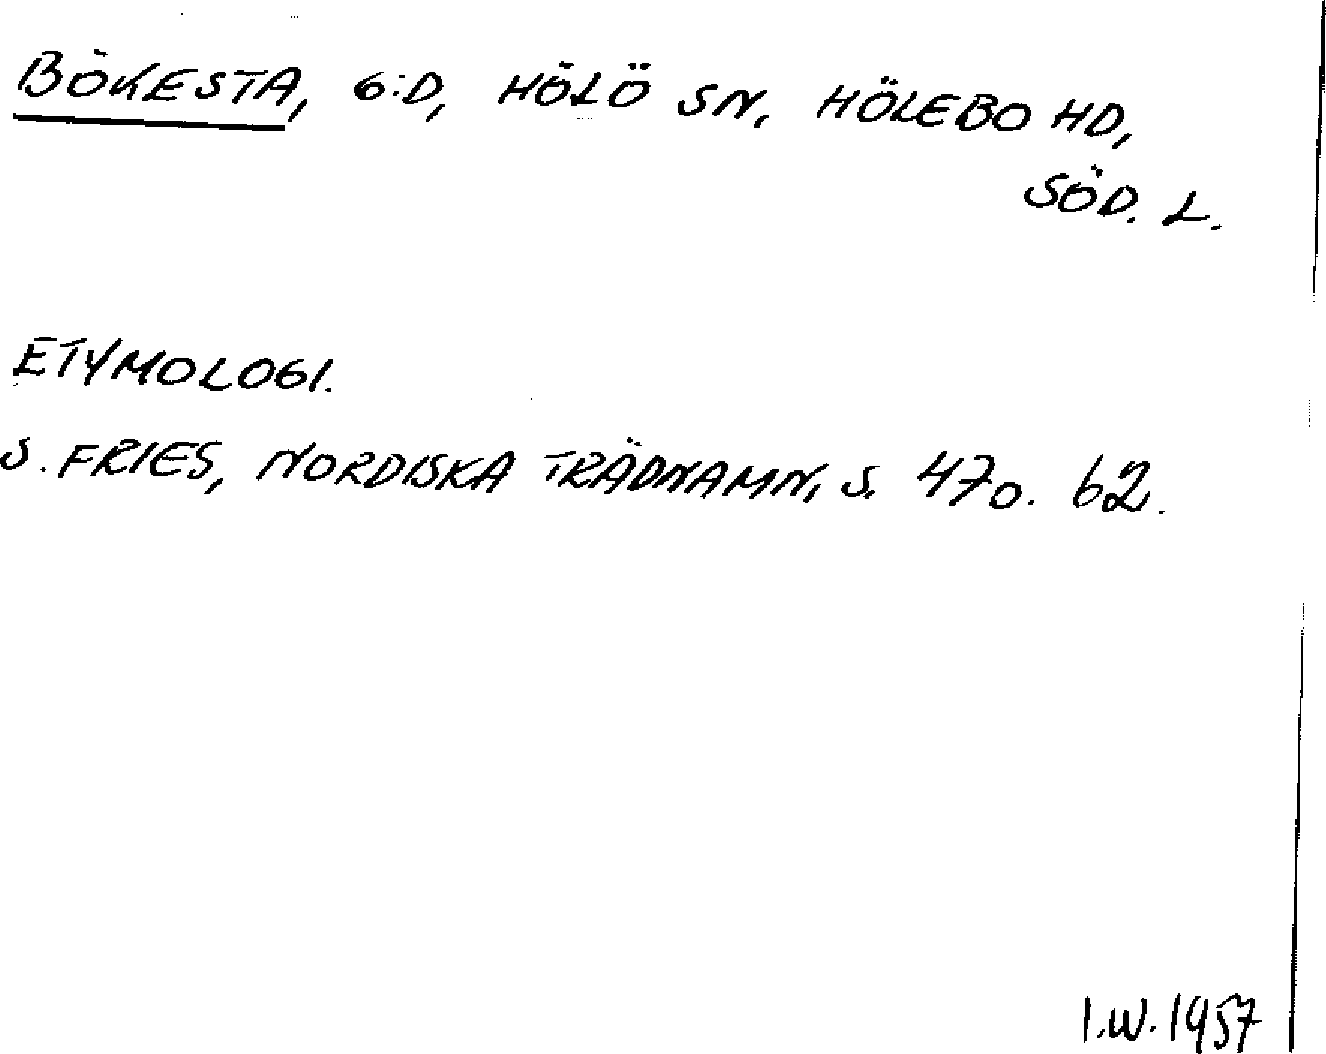 BÖKESTA, G:D, HÖLÖ SN, HÖLEBO HD,
SÖD. L.
ETYMOLOGI.
S. FRIES, NORDISKA TRÄDNAMN, S. 47 o. 62.
I.W. 1957